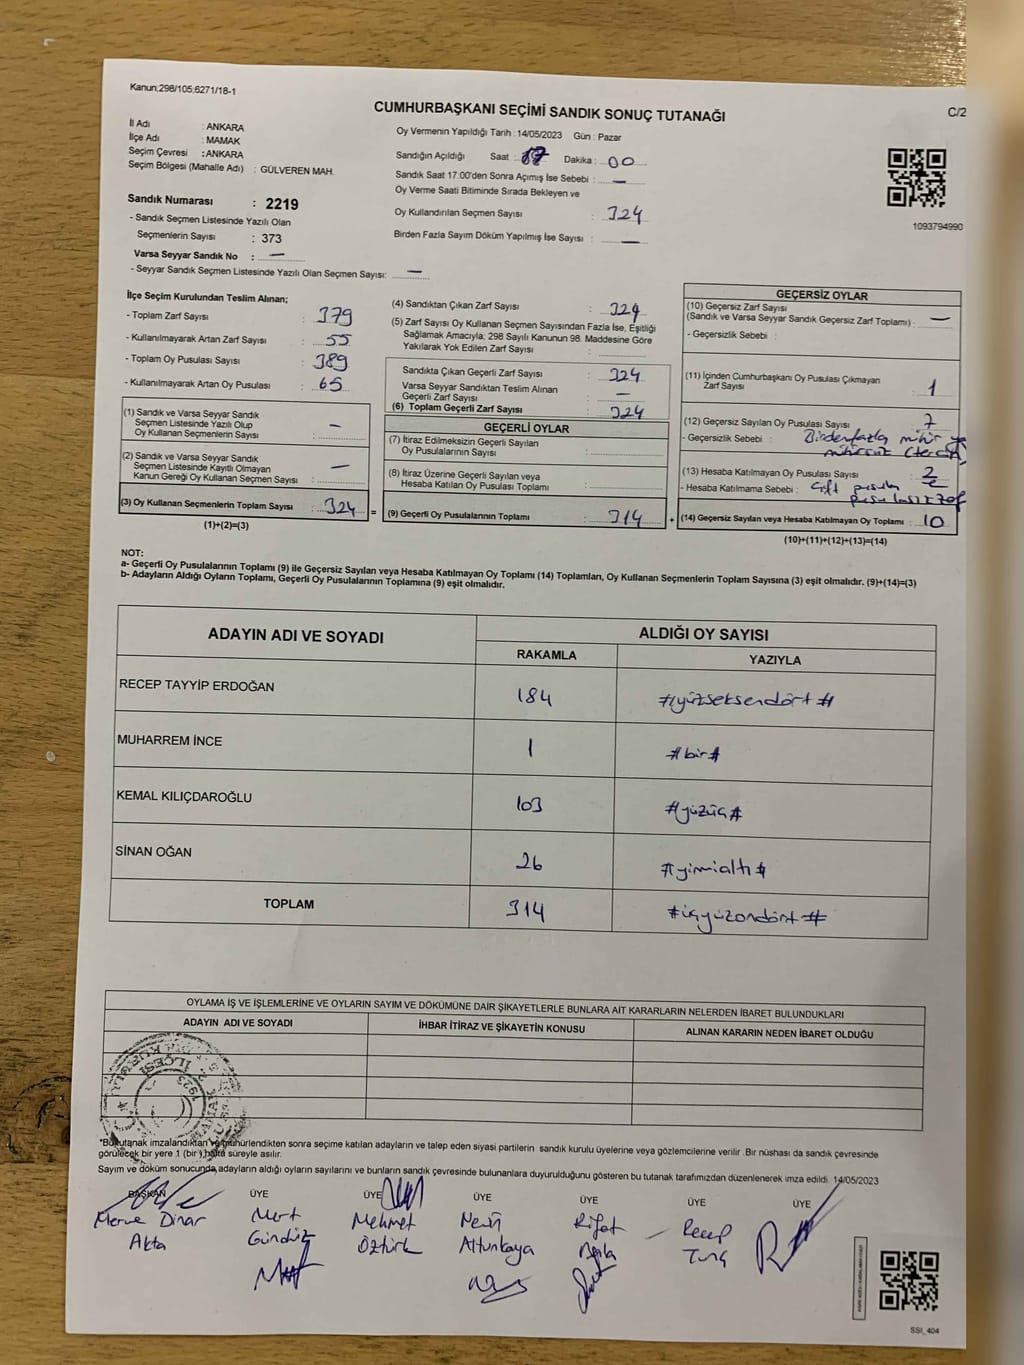 Kanun,298/105;6271/18-1
CUMHURBAŞKANI SEÇİMİ SANDIK SONUÇ TUTANAĞI
C/2
İl Adı : ANKARA
İlçe Adı : MAMAK
Seçim Çevresi : ANKARA
Seçim Bölgesi (Mahalle Adı) : GÜLVEREN MAH.
Sandık Numarası : 2219
- Sandık Seçmen Listesinde Yazılı Olan
Seçmenlerin Sayısı : 373
Varsa Seyyar Sandık No : —
- Seyyar Sandık Seçmen Listesinde Yazılı Olan Seçmen Sayısı: —
Oy Vermenin Yapıldığı Tarih : 14/05/2023 Gün : Pazar
Sandığın Açıldığı Saat : 17 Dakika : 00
Sandık Saat 17:00'den Sonra Açımış İse Sebebi : —
Oy Verme Saati Bitiminde Sırada Bekleyen ve
Oy Kullandırılan Seçmen Sayısı : 324
Birden Fazla Sayım Döküm Yapılmış İse Sayısı : —
1093794990
İlçe Seçim Kurulundan Teslim Alınan;
- Toplam Zarf Sayısı : 379
- Kullanılmayarak Artan Zarf Sayısı : 55
- Toplam Oy Pusulası Sayısı : 389
- Kullanılmayarak Artan Oy Pusulası : 65
(1) Sandık ve Varsa Seyyar Sandık
Seçmen Listesinde Yazılı Olup
Oy Kullanan Seçmenlerin Sayısı : —
(2) Sandık ve Varsa Seyyar Sandık
Seçmen Listesinde Kayıtlı Olmayan
Kanun Gereği Oy Kullanan Seçmen Sayısı : —
(3) Oy Kullanan Seçmenlerin Toplam Sayısı : 324
(1)+(2)=(3)
(4) Sandıktan Çıkan Zarf Sayısı : 324
(5) Zarf Sayısı Oy Kullanan Seçmen Sayısından Fazla İse, Eşitliği
Sağlamak Amacıyla; 298 Sayılı Kanunun 98. Maddesine Göre
Yakılarak Yok Edilen Zarf Sayısı :
Sandıkta Çıkan Geçerli Zarf Sayısı : 324
Varsa Seyyar Sandıktan Teslim Alınan
Geçerli Zarf Sayısı : —
(6) Toplam Geçerli Zarf Sayısı : 324
GEÇERLİ OYLAR
(7) İtiraz Edilmeksizin Geçerli Sayılan
Oy Pusulalarının Sayısı :
(8) İtiraz Üzerine Geçerli Sayılan veya
Hesaba Katılan Oy Pusulası Toplamı :
= (9) Geçerli Oy Pusulalarının Toplamı : 314
GEÇERSİZ OYLAR
(10) Geçersiz Zarf Sayısı
(Sandık ve Varsa Seyyar Sandık Geçersiz Zarf Toplamı) : —
- Geçersizlik Sebebi :
(11) İçinden Cumhurbaşkanı Oy Pusulası Çıkmayan
Zarf Sayısı : 1
(12) Geçersiz Sayılan Oy Pusulası Sayısı : 7
- Geçersizlik Sebebi : Birden fazla mühür
mühürsüz
(13) Hesaba Katılmayan Oy Pusulası Sayısı : 2
- Hesaba Katılmama Sebebi : Çift pusula
+ (14) Geçersiz Sayılan veya Hesaba Katılmayan Oy Toplamı : 10
(10)+(11)+(12)+(13)=(14)
NOT:
a- Geçerli Oy Pusulalarının Toplamı (9) ile Geçersiz Sayılan veya Hesaba Katılmayan Oy Toplamı (14) Toplamları, Oy Kullanan Seçmenlerin Toplam Sayısına (3) eşit olmalıdır. (9)+(14)=(3)
b- Adayların Aldığı Oyların Toplamı, Geçerli Oy Pusulalarının Toplamına (9) eşit olmalıdır.
ADAYIN ADI VE SOYADI ALDIĞI OY SAYISI
RAKAMLA YAZIYLA
RECEP TAYYİP ERDOĞAN 184 #yüzseksendört#
MUHARREM İNCE 1 #bir#
KEMAL KILIÇDAROĞLU 103 #yüzüç#
SİNAN OĞAN 26 #yirmialtı#
TOPLAM 314 #üçyüzondört#
OYLAMA İŞ VE İŞLEMLERİNE VE OYLARIN SAYIM VE DÖKÜMÜNE DAİR ŞİKAYETLERLE BUNLARA AİT KARARLARIN NELERDEN İBARET BULUNDUKLARI
ADAYIN ADI VE SOYADI İHBAR İTİRAZ VE ŞİKAYETİN KONUSU ALINAN KARARIN NEDEN İBARET OLDUĞU
*Bu tutanak imzalandıktan ve mühürlendikten sonra seçime katılan adayların ve talep eden siyasi partilerin sandık kurulu üyelerine veya gözlemcilerine verilir. Bir nüshası da sandık çevresinde
görülecek bir yere 1 (bir) hafta süreyle asılır.
Sayım ve döküm sonucunda adayların aldığı oyların sayılarını ve bunların sandık çevresinde bulunanlara duyurulduğunu gösteren bu tutanak tarafımızdan düzenlenerek imza edildi. 14/05/2023
BAŞKAN ÜYE ÜYE ÜYE ÜYE ÜYE ÜYE
Merve Dinar Mert Mehmet Nesrin Rıfat Recep
Akta Gündüz Öztürk Altunkaya Tunç
SSI_404